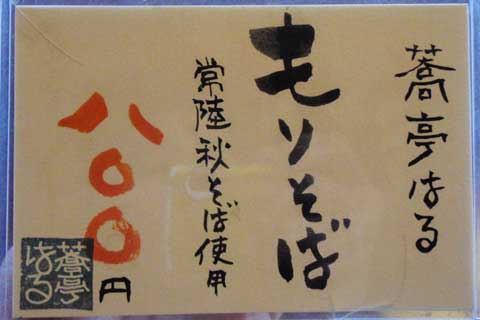 蕎亭はる
もりそば
常陸秋そば使用
八〇〇円
蕎亭
はる